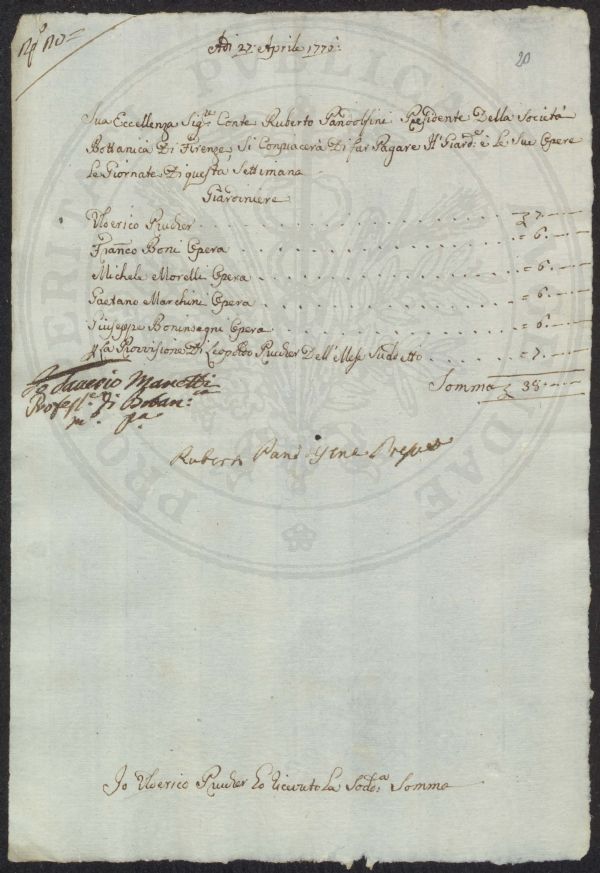 N.º 20=
Adi 27: Aprile 1771:
20
Sua Eccellenza Sig.re Conte Ruberto Pandolfini Presidente Della Società
Bottanica Di Firenze, Si Conpiacerà Di far Pagare Al' Giard.re e Le Sue Opere
Le Giornate Di questa Settimana
Giardiniere
Ulderico Prucher . . . £ 7. —
Franco Boni Opera . . . = 6. —
Michele Morelli Opera . . . = 6. —
Gaetano Marchini Opera . . . = 6. —
Giuseppe Boninsegni Opera . . . = 6. —
P La Provisione Di Leopoldo Prucher Dell' Mese Sudetto . . = 7. —
Somma £ 38. —
Io Saverio Manetti
Profess.e Di Botan.ca
m. p.a
Ruberto Pandolfini
Io Ulderico Prucher Ho Riceuto La Sod.a Somma
PUBLICAE
PROSPERITATI